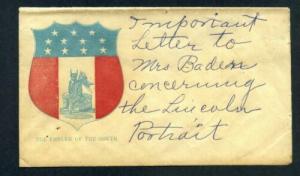 Important
Letter to
Mrs Baden
concerning
the Lincoln
Portrait
THE EMBLEM OF THE SOUTH